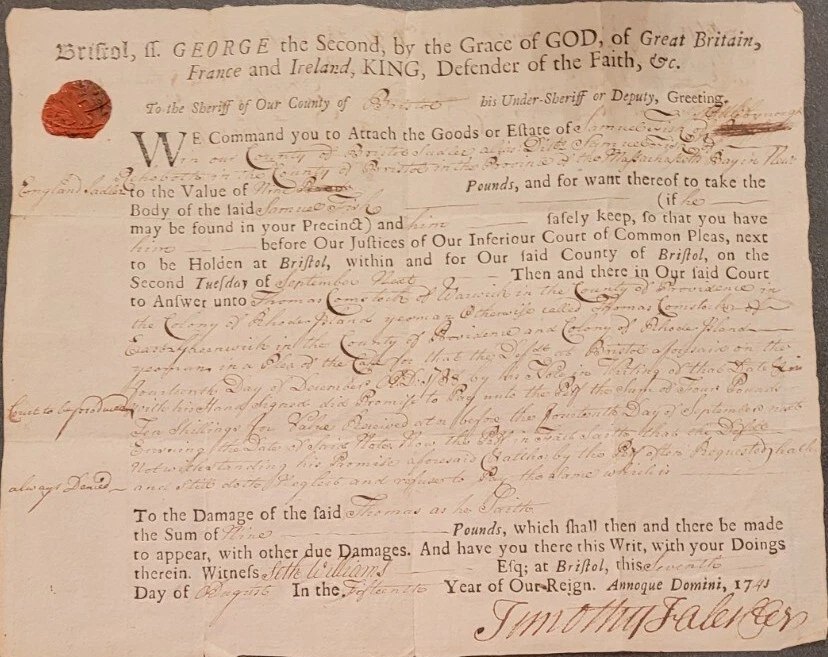 Bristol, ss. GEORGE the Second, by the Grace of GOD, of Great Britain,
France and Ireland, KING, Defender of the Faith, &c.
To the Sheriff of Our County of Bristol his Under-Sheriff or Deputy, Greeting.
WE Command you to Attach the Goods or Estate of Samuel Fish of
in our County of Bristol Sadler alias Dictus Samuel Fish of
Rehoboth in the County of Bristol in the Province of the Massachusetts Bay in New
England Sadler to the Value of Nine Pounds, and for want thereof to take the
Body of the said Samuel Fish (if he
may be found in your Precinct) and him safely keep, so that you have
him before Our Justices of Our Inferiour Court of Common Pleas, next
to be Holden at Bristol, within and for Our said County of Bristol, on the
Second Tuesday of September Next Then and there in Our said Court
to Answer unto Thomas Comstock of Warwick in the County of Providence in
the Colony of Rhode Island yeoman Otherwise called Thomas Comstock of
East Greenwich in the County of Providence and Colony of Rhode Island
yeoman in a Plea of the Case for that the Defdt at Bristol aforesaid on the
fourteenth Day of December 1738 by his Note in Writing of that Date
Court to be produced with his Hand Signed did Promise to Pay unto the Plf the Sum of Four Pounds
Ten Shillings for Value Received at or before the fourteenth Day of September next
Ensuing the Date of said Note Now the Plf in Fact Saith that the Defdt
Notwithstanding his Promise aforesaid (& altho by the Plf often Requested) hath
always Denied and still doth Neglect and refuse to Pay the same which is
To the Damage of the said Thomas as he Saith
the Sum of Nine Pounds, which shall then and there be made
to appear, with other due Damages. And have you there this Writ, with your Doings
therein. Witness Seth Williams Esq; at Bristol, this Seventh
Day of August In the Fifteenth Year of Our Reign. Annoque Domini, 1741
Timothy Fales Cler